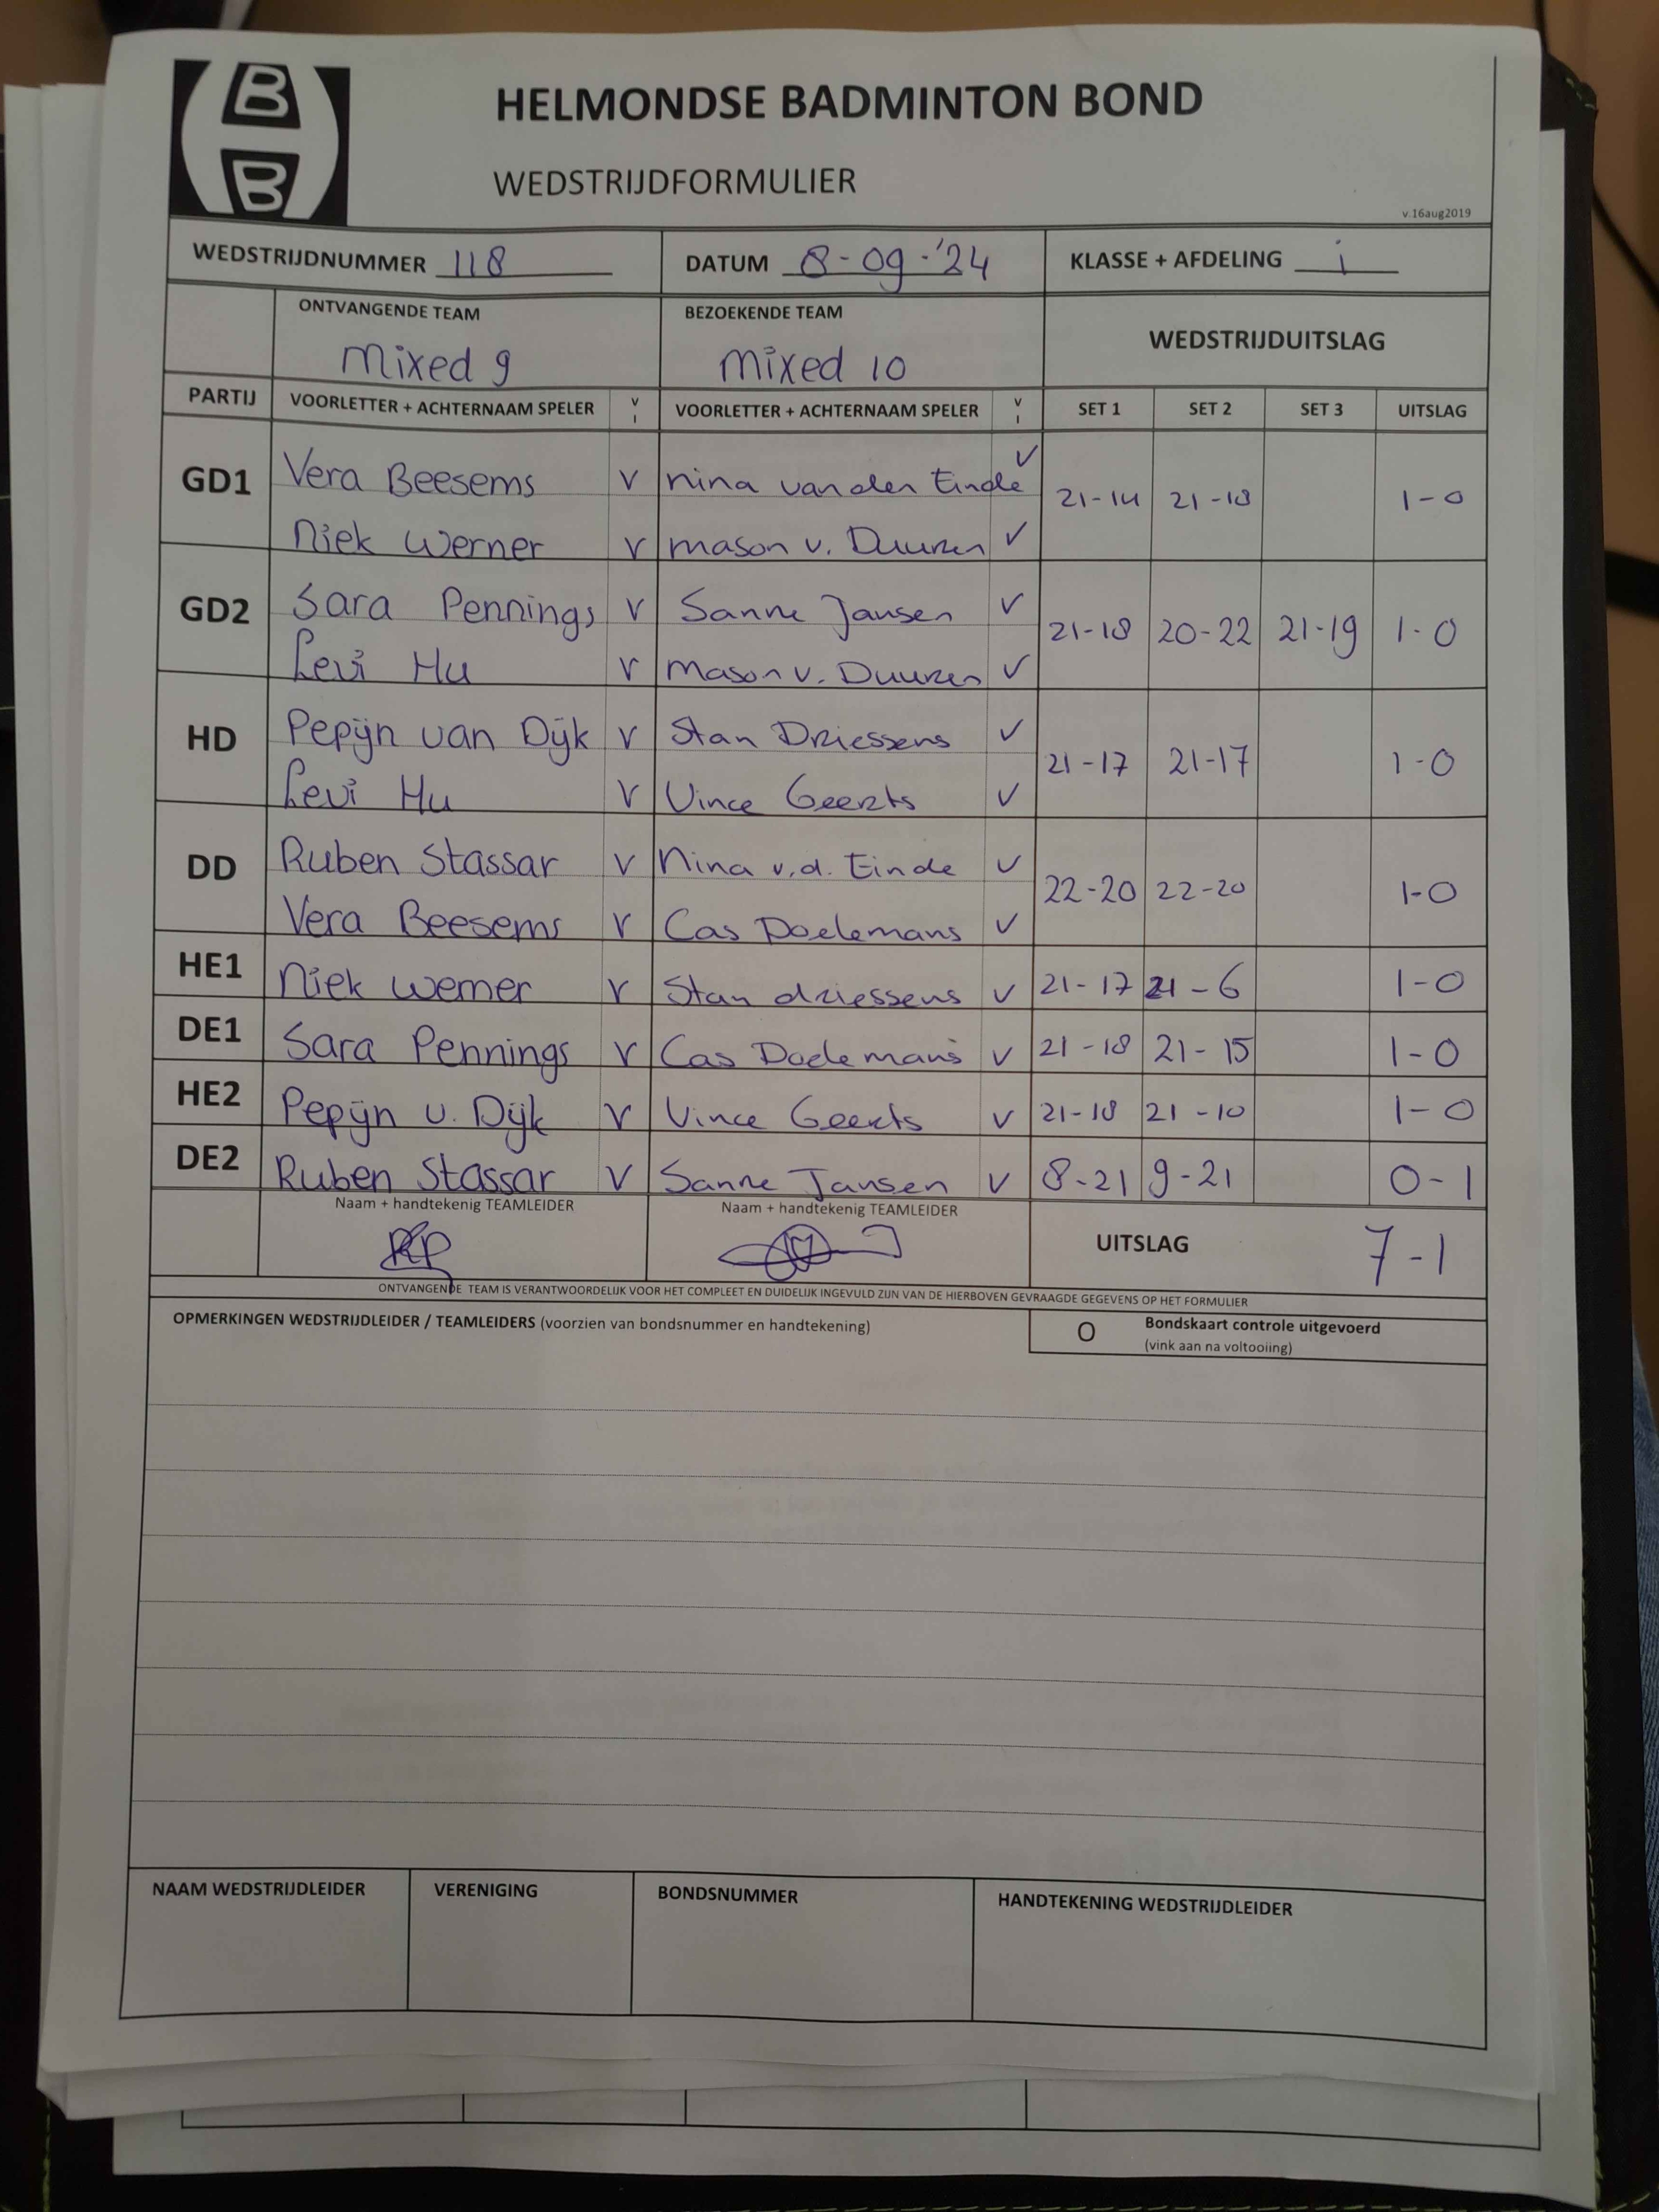 B
B
HELMONDSE BADMINTON BOND
WEDSTRIJDFORMULIER
v.16aug2019
WEDSTRIJDNUMMER 118 DATUM 8-09-'24 KLASSE + AFDELING i
ONTVANGENDE TEAM BEZOEKENDE TEAM WEDSTRIJDUITSLAG
mixed 9 mixed 10
PARTIJ VOORLETTER + ACHTERNAAM SPELER V I VOORLETTER + ACHTERNAAM SPELER V I SET 1 SET 2 SET 3 UITSLAG
GD1 Vera Beesems V nina van den Einde V 21-14 21-18 1-0
Niek Werner V mason v. Duuren V
GD2 Sara Pennings V Sanne Jansen V 21-18 20-22 21-19 1-0
Levi Hu V mason v. Duuren V
HD Pepijn van Dijk V Stan Driessens V 21-17 21-17 1-0
Levi Hu V Vince Geerts V
DD Ruben Stassar V Nina v.d. Einde V 22-20 22-20 1-0
Vera Beesems V Cas Doelemans V
HE1 Niek Werner V Stan driessens V 21-17 21-6 1-0
DE1 Sara Pennings V Cas Doelemans V 21-18 21-15 1-0
HE2 Pepijn v. Dijk V Vince Geerts V 21-18 21-10 1-0
DE2 Ruben Stassar V Sanne Jansen V 8-21 9-21 0-1
Naam + handtekenig TEAMLEIDER Naam + handtekenig TEAMLEIDER
UITSLAG 7-1
ONTVANGENDE TEAM IS VERANTWOORDELIJK VOOR HET COMPLEET EN DUIDELIJK INGEVULD ZIJN VAN DE HIERBOVEN GEVRAAGDE GEGEVENS OP HET FORMULIER
OPMERKINGEN WEDSTRIJDLEIDER / TEAMLEIDERS (voorzien van bondsnummer en handtekening) O Bondskaart controle uitgevoerd
(vink aan na voltooiing)
NAAM WEDSTRIJDLEIDER VERENIGING BONDSNUMMER HANDTEKENING WEDSTRIJDLEIDER